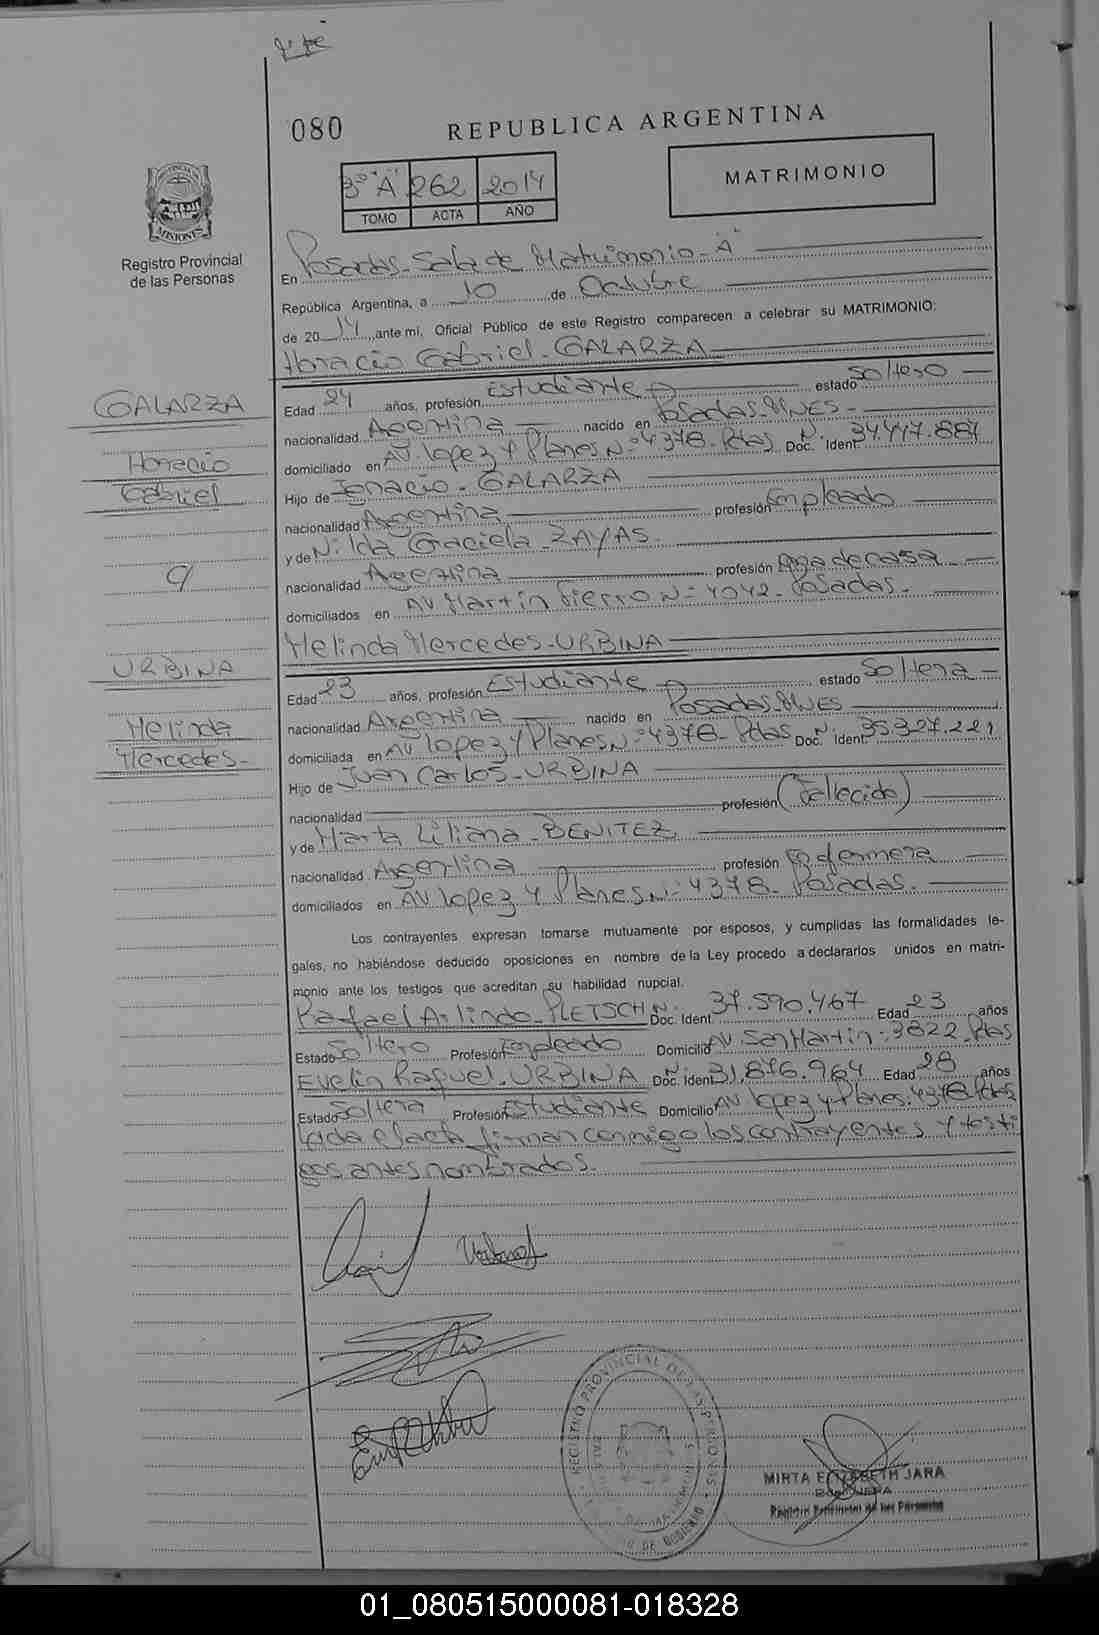 080
REPUBLICA ARGENTINA
3º "A" 262 2014
TOMO ACTA AÑO
MATRIMONIO
PROVINCIA DE MISIONES
Registro Provincial
de las Personas
En Posadas-Sala de Matrimonio-"A"
República Argentina, a 10 de Octubre
de 2014, ante mí, Oficial Público de este Registro comparecen a celebrar su MATRIMONIO:
Horacio Gabriel-GALARZA
GALARZA
Horacio
Gabriel
Edad 24 años, profesión Estudiante estado Soltero
nacionalidad Argentina nacido en Posadas-MNES-
domiciliado en AV. Lopez y Planes Nº 4378-Pdas Doc. Nº Ident 34.447.884
Hijo de Ignacio-GALARZA
nacionalidad Argentina profesión Empleado
y de Nilda Graciela-ZAYAS-
nacionalidad Argentina profesión Ama de casa
domiciliados en AV Martin Fierro Nº 4042-Posadas-
Melinda Mercedes-URBINA
URBINA
Melinda
Mercedes-
Edad 23 años, profesión Estudiante estado Soltera-
nacionalidad Argentina nacido en Posadas-MNES
domiciliada en AV Lopez y Planes Nº 4378-Pdas Doc. Nº Ident 35.327.221
Hijo de Juan Carlos-URBINA
nacionalidad profesión (Fallecido)
y de Marta Liliana-BENITEZ
nacionalidad Argentina profesión Enfermera
domiciliados en AV Lopez y Planes Nº 4378-Posadas.
Los contrayentes expresan tomarse mutuamente por esposos, y cumplidas las formalidades le-
gales, no habiéndose deducido oposiciones en nombre de la Ley procedo a declararlos unidos en matri-
monio ante los testigos que acreditan su habilidad nupcial.
Rafael Arlindo-PLETSCH Doc. Nº Ident 37.590.467 Edad 23 años
Estado Soltero Profesión Empleado Domicilio AV. San Martin: 3822-Pdas
Evelin Raquel-URBINA Doc. Nº Ident 31.876.964 Edad 28 años
Estado Soltera Profesión Estudiante Domicilio AV Lopez y Planes: 4378-Pdas
Leida el acta, firman conmigo los contrayentes y testi
gos antes nombrados.
REGISTRO PROVINCIAL DE LAS PERSONAS
MIRTA ELIZABETH JARA
Registro Provincial de las Personas
01_080515000081-018328